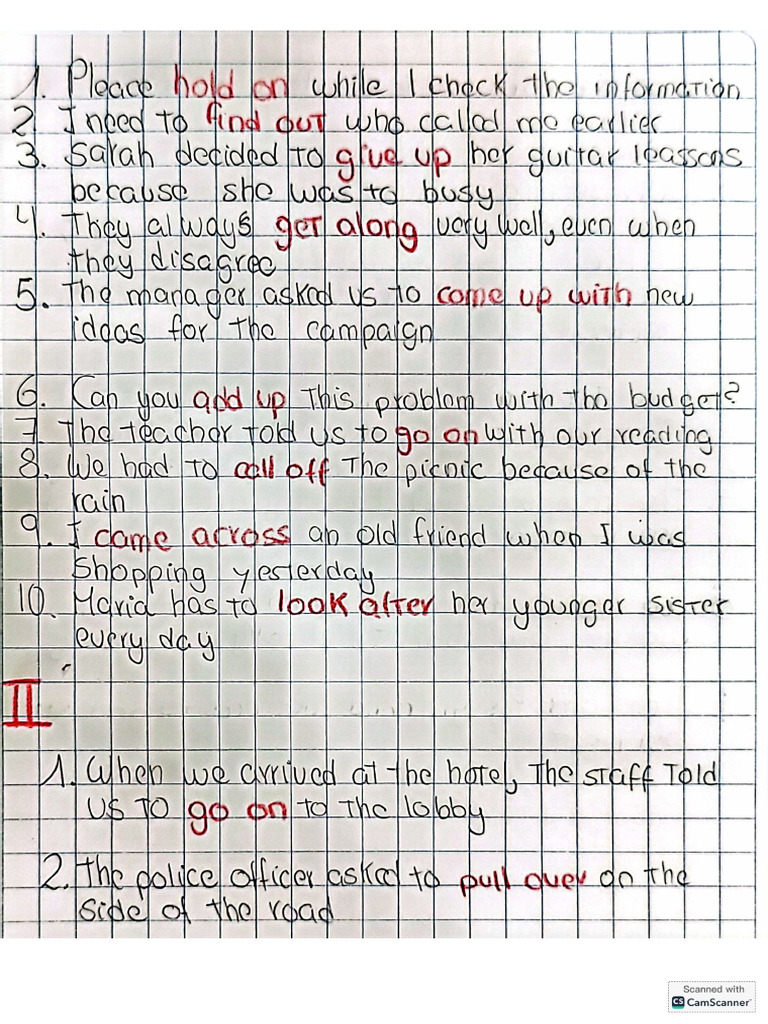 1. Please hold on while I check the information
2 I need to find out who called me earlier
3. Sarah decided to give up her guitar leassons
because she was to busy
4. They always get along very well, even when
they disagree
5. The manager asked us to come up with new
ideas for the campaign
6. Can you add up this problem with the budget?
7. The teacher told us to go on with our reading
8. We had to call off the picnic because of the
rain
9. I came across an old friend when I was
shopping yesterday
10. Maria has to look after her younger sister
every day
II
1. When we arrived at the hotel, the staff told
us to go on to the lobby
2. The police officer asked to pull over on the
side of the road
Scanned with
CS CamScanner